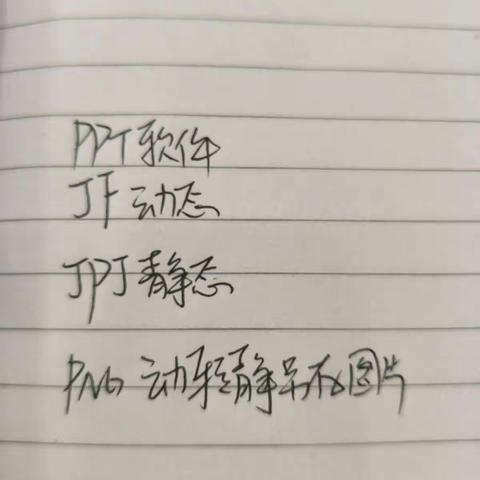 PPT软件
JF动态
JPJ静态
PNG 动 静 图片